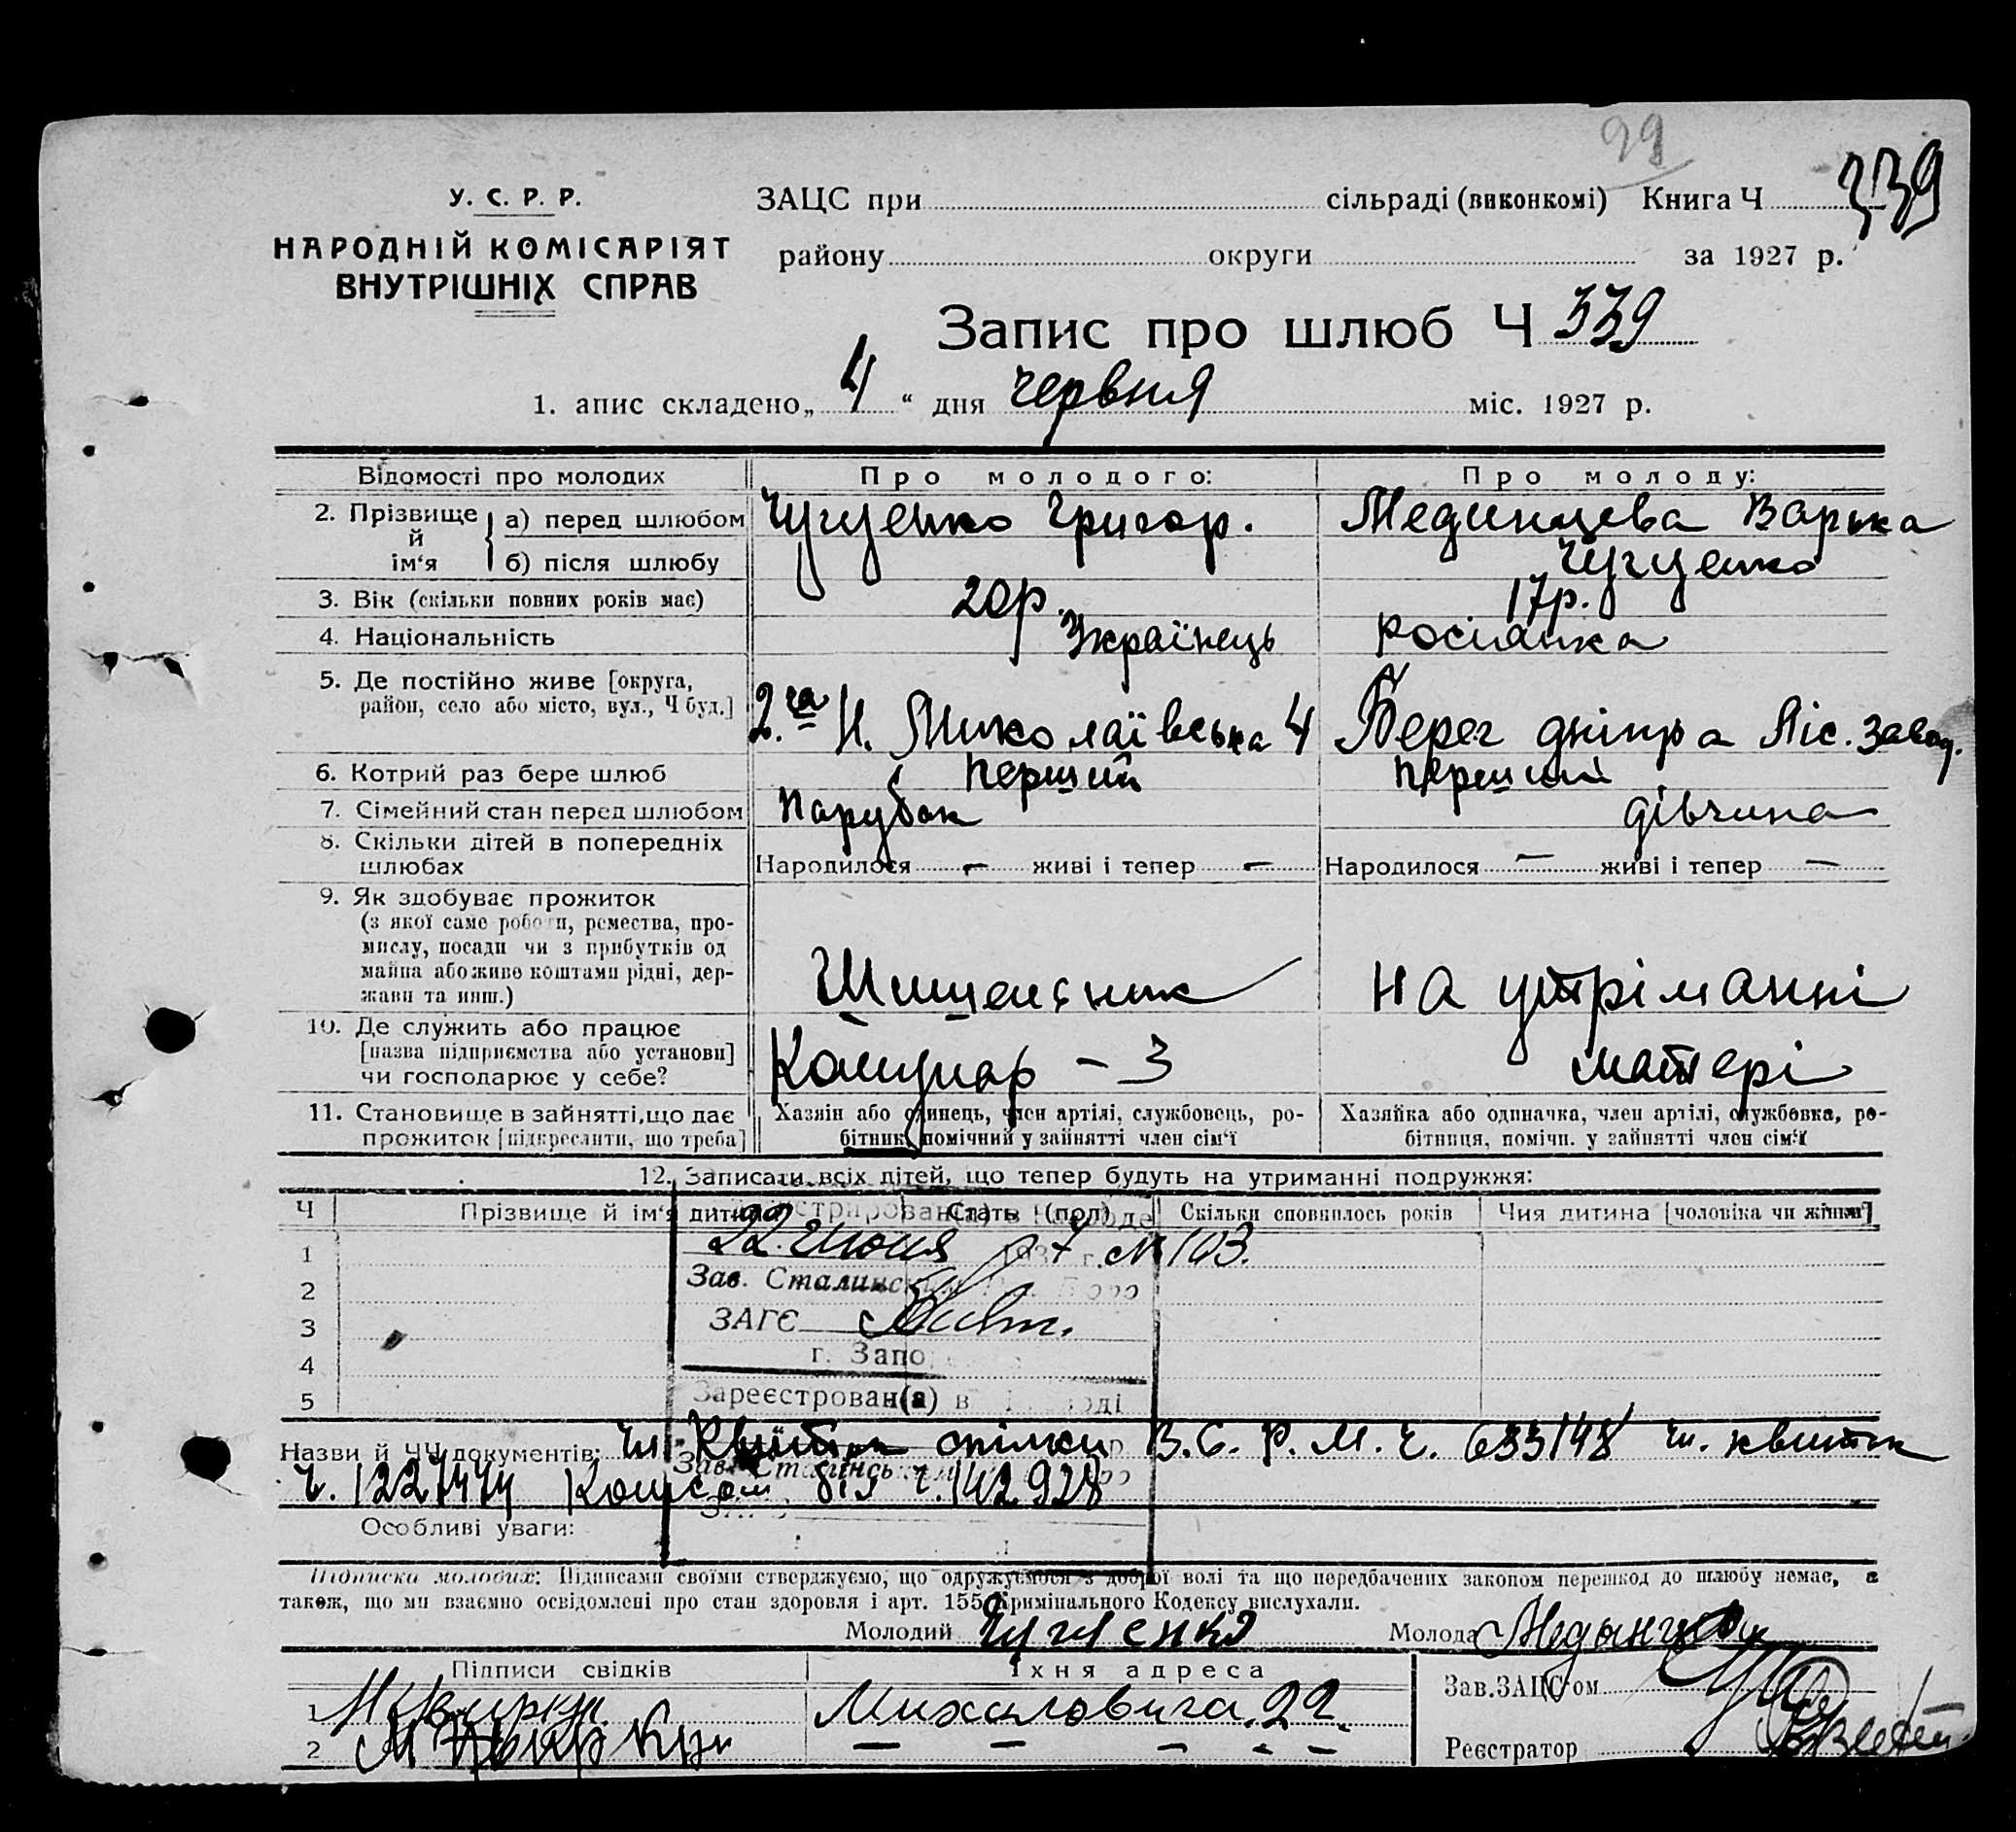 99
У. С. Р. Р.
НАРОДНІЙ КОМІСАРІЯТ
ВНУТРІШНІХ СПРАВ
ЗАЦС при сільраді (виконкомі) Книга Ч 339
району округи за 1927 р.
Запис про шлюб Ч 339
1. апис складено „ 4 “ дня червня міс. 1927 р.
Відомості про молодих Про молодого: Про молоду:
2. Прізвище й ім‘я а) перед шлюбом Чугуенко Григор. Мединцева Варька
б) після шлюбу Чугуенко
3. Вік (скільки повних років має) 20р. 17р.
4. Національність Українець росіянка
5. Де постійно живе [округа,
район, село або місто, вул., Ч буд.] 2.га Н. Миколаївська 4 Берег дніпра Ліс. завод.
6. Котрий раз бере шлюб Перший перший
7. Сімейний стан перед шлюбом парубок дівчина
8. Скільки дітей в попередніх
шлюбах Народилося — живі і тепер — Народилося — живі і тепер —
9. Як здобуває прожиток
(з якої саме роботи, ремества, про-
мислу, посади чи з прибутків од
майна або живе коштами рідні, дер-
жави та инш.) на утріманні
10. Де служить або працює
[назва підприємства або установи]
чи господарює у себе? Комунар - 3 матері
11. Становище в зайнятті, що дає
прожиток [підкреслити, що треба]
Хазяін або одинець, член артілі, службовець, ро-
бітник, помічний у зайнятті член сім‘ї
Хазяйка або одиначка, член артілі, службовка, ро-
бітниця, помічн. у зайнятті член сім‘ї
12. Записати всіх дітей, що тепер будуть на утриманні подружжя:
Ч Прізвище й ім‘я дитини Стать (пол) Скільки сповнилось років Чия дитина [чоловіка чи жінки]
1
2
3
4
5
22 июня 1937 г. № 103.
Зав. Сталинск
ЗАГС
г. Запо
Зареєстрован(а) в
Зав. Сталінськ
Назви й ЧЧ документів: Чл. спілки В. С. Р. М. Ч. 633148 чл. квиток
Ч. 1221474 Комсом. ч. 142928
Особливі уваги:
Підписки молодих: Підписами своїми стверджуємо, що одружуємося з доброї волі та що передбачених законом перешкод до шлюбу немає, а
також, що ми взаємно освідомлені про стан здоровля і арт. 155 Кримінального Кодексу вислухали.
Молодий Чугуенко Молода Медынцева
Підписи свідків Їхня адреса Зав. ЗАЦС‘ом
1 Михаловича. 22.
2 — — — — —
Реєстратор